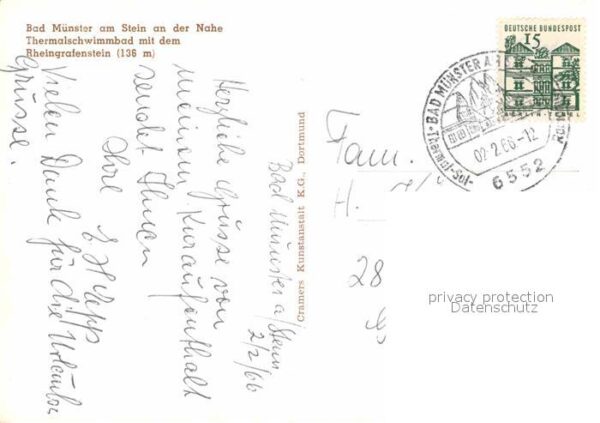 Bad Münster am Stein an der Nahe
Thermalschwimmbad mit dem
Rheingrafenstein (136 m)
Bad Münster a/Stein
2/2/66
Herzliche Grüsse von
meinem Kuraufenthalt
sendet Ihnen
Ihre
E. H
Vielen Dank für die
Grüsse.
Cramers Kunstanstalt K.G., Dortmund
DEUTSCHE BUNDESPOST
15
BERLIN-TEGEL
BAD MÜNSTER A
Thermal-Sol-
02.2.66-12
6552
Fam.
H.
28
privacy protection
Datenschutz